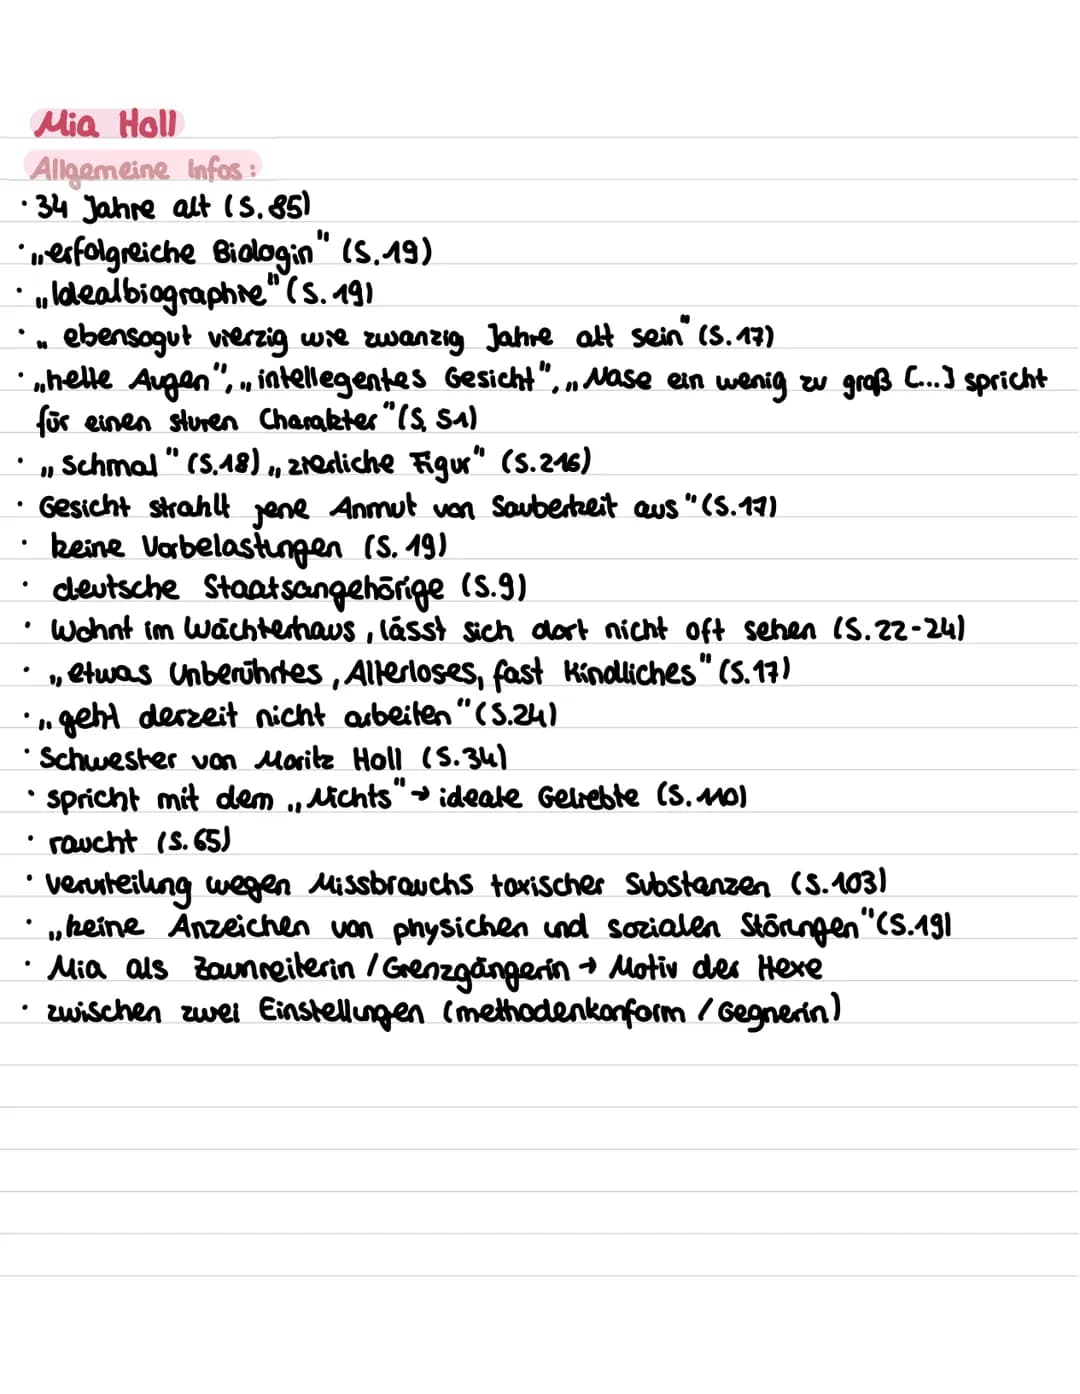 Mia Holl
Allgemeine Infos:
· 34 Jahre alt (S.85)
· „erfolgreiche Biologin" (S.19)
· „Idealbiographie" (S. 19)
· „ ebensogut vierzig wie zwanzig Jahre alt sein" (S.17)
· „helle Augen", „intellegentes Gesicht", „Nase ein wenig zu groß [...] spricht
für einen sturen Charakter" (S. 51)
· „Schmal" (S.18) „zierliche Figur" (S.216)
· Gesicht strahlt jene Anmut von Sauberkeit aus" (S.17)
· keine Vorbelastungen (S. 19)
· deutsche Staatsangehörige (S.9)
· Wohnt im Wächterhaus, lässt sich dort nicht oft sehen (S.22-24)
· „etwas Unberührtes, Alterloses, fast Kindliches" (S.17)
· „geht derzeit nicht arbeiten" (S.24)
· Schwester von Moritz Holl (S.34)
· spricht mit dem „Nichts" → ideale Geliebte (S.110)
· raucht (S.65)
· Verurteilung wegen Missbrauchs toxischer Substanzen (S.103)
· „keine Anzeichen von physichen und sozialen Störungen" (S.19)
· Mia als Zaunreiterin / Grenzgängerin → Motiv der Hexe
· zwischen zwei Einstellungen (methodenkonform / Gegnerin)